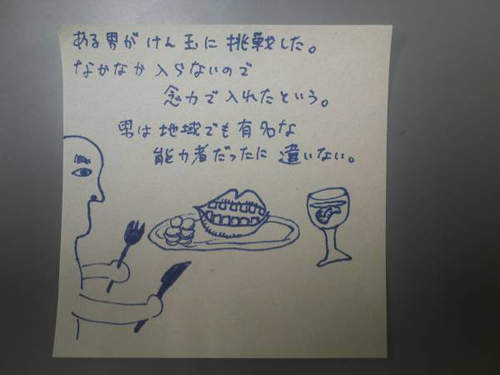 ある男がけん玉に挑戦した。
なかなか入らないので
念力で入れたという。
男は地域でも有名な
能力者だったに違いない。